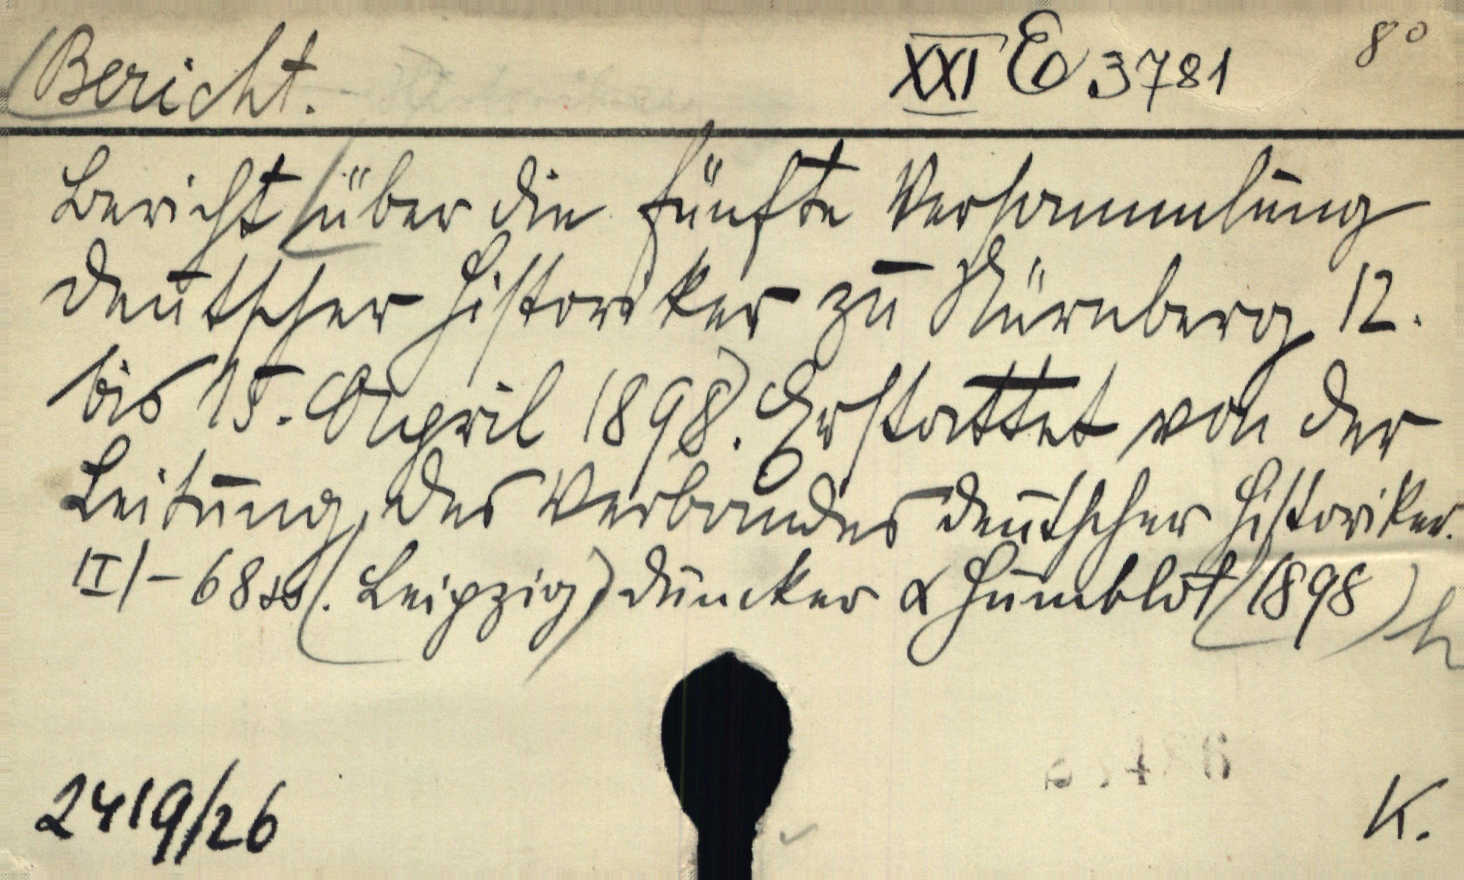 Bericht. XXI E 3781 8°
Bericht über die fünfte Versammlung
deutscher Historiker zu Nürnberg 12.
bis 15. April 1898. Erstattet von der
Leitung des Verbandes deutscher Historiker.
II/-68 ss. Leipzig) Duncker & Humblot (1898)
2419/26 K.